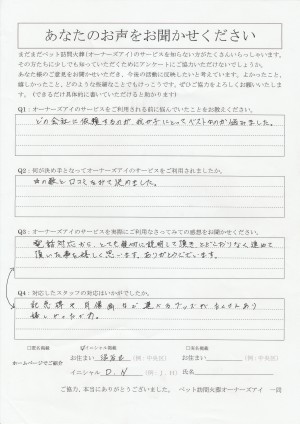 あなたのお声をお聞かせください
まだまだペット訪問火葬(オーナーズアイ)のサービスを知らない方がたくさんいらっしゃいます。
その方たちに少しでも知っていただくためにアンケートにご協力いただけないでしょうか。
あなた様のご意見をお聞かせいただき、今後の活動に反映したいと考えています。よかったこと、
嬉しかったこと、どのような些細なことでもけっこうです。ぜひご協力をよろしくお願いいたします。
(できるだけ具体的に書いていただけると助かります)
Q1:オーナーズアイのサービスをご利用される前に悩んでいたことをお教えください。
どの会社に依頼するのが、我が家にとってベストなのか悩みました。
Q2:何が決め手となってオーナーズアイのサービスをご利用されましたか。
の数と口コミを見て決めました。
Q3:オーナーズアイのサービスを実際にご利用なさってみての感想をお聞かせください。
電話対応から、とても親切に説明して頂き、とどこおりなく進めて
頂いた事を嬉しく思います。ありがとうございます。
Q4:対応したスタッフの対応はいかがでしたか。
記念樽や肖像画など選べるグッズがたくさんあり
嬉しかったです。
□匿名掲載 イニシャル掲載 □実名掲載
ホームページでご紹介
お住まい (例:中央区) お住まい (例:中央区)
イニシャル D.N (例:J.H) 氏名
ご協力、本当にありがとうございました。 ペット訪問火葬オーナーズアイ 一同